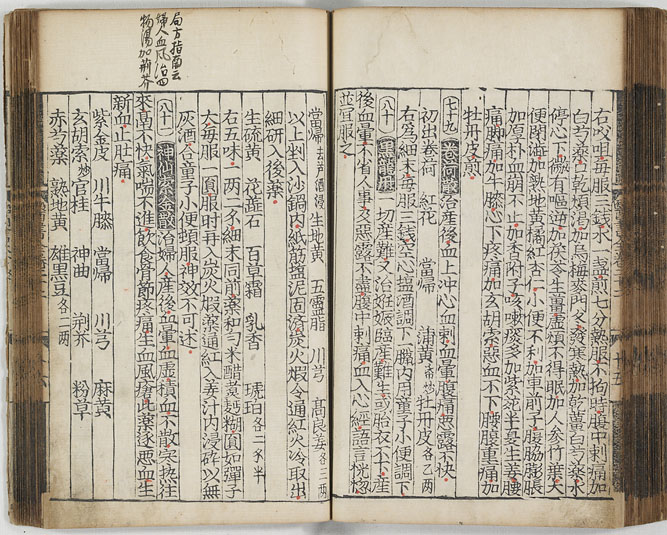 右㕮咀毎服三錢水一盞煎七分熱服不拘時腹中刺痛加
白芍藥口乾煩渴加烏梅麥門冬發寒熱加乾薑白芍藥水
停心下微有嘔逆加茯苓生薑虛煩不得眠加人參竹葉大
便閉澁加熟地黃橘紅杏仁小便不利加車前子腹脇膨脹
加厚朴血崩不止加香附子咳嗽痰多加紫菀半夏生薑腰
痛脚痛加牛膝心下疼痛加玄胡索惡血不下腰腹重痛加
牡丹皮煎
七十九 卷荷散治産後血上冲心血刺血暈腹痛惡露不快
初出卷荷 紅花 當帰 蒲黃 牡丹皮各乙兩
右為細末毎服三錢空心塩酒調下一臘內用童子小便調下
八十 黑龍丹 一切産難又治姙娠臨産難生或胎衣不下産
後血暈不省人事及惡露不盡腹中刺痛血入心經語言恍惚
並宜服之
當帰 生地黃 五靈脂 川芎 高良姜各三兩
以上剉入沙鍋內紙筋塩泥固濟炭火煆令通紅火冷取出
細研入後藥
生硫黃 花蕋石 百草霜 乳香 琥珀各二錢半
右五味一兩二多細末同前藥和勻米醋煑麪糊圓如彈子
大毎服一圓服時再入炭火煆藥通紅入姜汁內浸碎以無
灰酒合童子小便頓服神效不可述
八十一 神仙紫金散治婦人産後血暈血虛積血不散寒熱往
來鬲不快氣喘不進飮食骨節疼痛生血風瘡此藥逐惡血生
新血上肚痛
紫金皮 川牛膝 當帰 川芎 麻黃
玄胡索炒 官桂 神曲 荊芥 粉草
赤芍藥 熟地黃 雄黑豆各二兩
局方指南云
婦人血風治四
物湯加荊芥